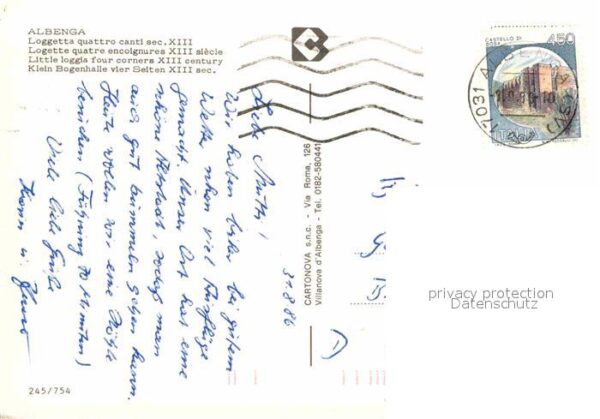 ALBENGA
Loggetta quattro canti sec. XIII
Logette quatre encoignures XIII siècle
Little loggia four corners XIII century
Klein Bogenhalle vier Seiten XIII sec.
CASTELLO DI
450
17031 A
ITALIA
CARTONOVA s.n.c. - Via Roma, 126
Villanova d'Albenga - Tel. 0182-580441
31.8.86
Liebe Mutti!
Wir haben bisher bei gutem
Wetter schon viel Ausflüge
gemacht. Unser Ort hat eine
schöne Altstadt, sodaß man
auch gut bummeln gehen kann.
Heute wollen wir eine Höhle
besichen (Führung 70 Minuten)
Viele liebe Grüße
u.
D
245/754
privacy protection
Datenschutz